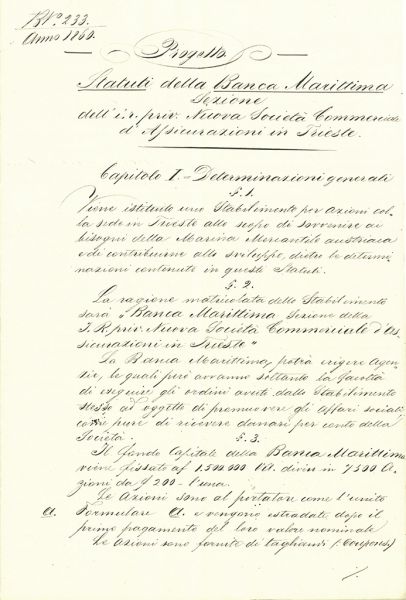 B.No. 233.
Anno 1860.
Progetto
Statuti della Banca Marittima
Sezione
dell'i.r. priv. Nuova Società Commerciale
d'Assicurazioni in Trieste.
Capitolo I. - Determinazioni generali
§. 1.
Viene istituito uno Stabilimento per azioni col-
la sede in Trieste allo scopo di sovvenire ai
bisogni della Marina Mercantile austriaca
e di contribuirne allo sviluppo, dietro le determi-
nazioni contenute in questi Statuti.
§. 2.
La ragione matricolata dello Stabilimento
sarà "Banca Marittima Sezione della
I. R. priv. Nuova Società Commerciale d'As-
sicurazioni in Trieste"
La Banca Marittima potrà erigere Agen-
zie, le quali però avranno soltanto la facoltà
di eseguire gli ordini avuti dallo Stabilimento
stesso ad oggetto di promuovere gli affari sociali,
come pure di ricevere danari per conto della
Società.
§. 3.
Il fondo Capitale della Banca Marittima
viene fissato a f 1,500.000 V.A. divisi in 7500 A-
zioni da f 200 - l'una.
Le Azioni sono al portatore come l'unito
A. Formulare A. e vengono estradate dopo il
primo pagamento del loro valore nominale
Le azioni sono fornite di tagliandi (: Coupons :)